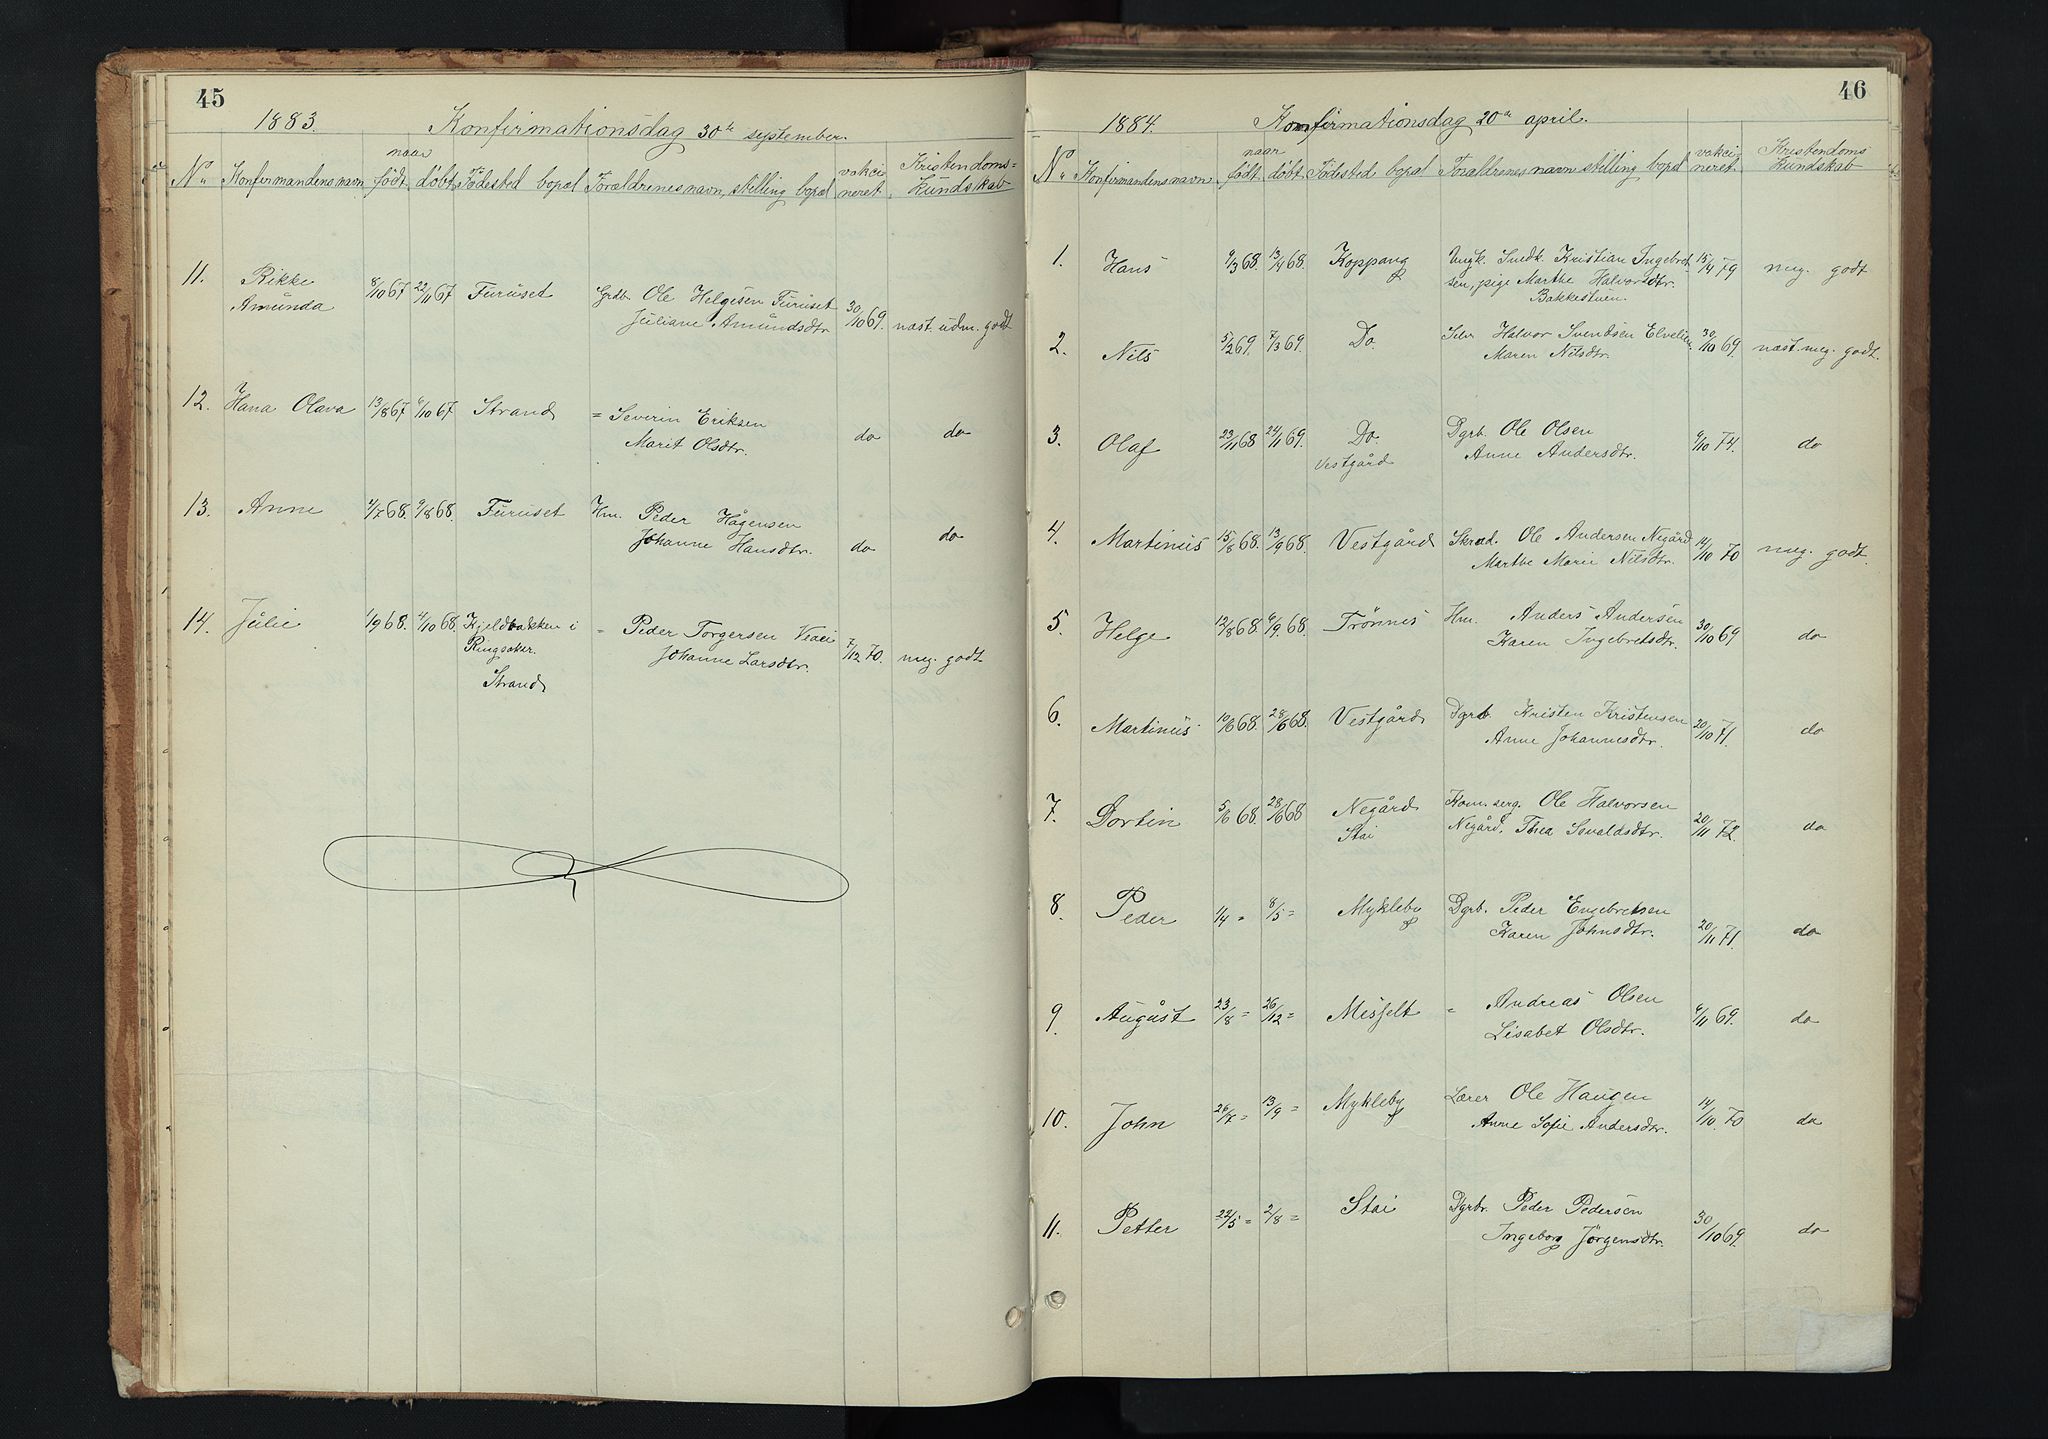 45
1883. Konfirmationsdag 30te september.
No. Konfirmandens navn naar født døbt Fødested bopæl Forældrenes navn, stilling bopæl vakcineret Kristendoms=kundskab
11. Rikke Amunda 8/10 67 22/11 67 Furuset Grdb. Ole Helgesen Furuset
Juliane Amundsdtr 30/10 69. næst. udm. godt
12. Hana Olava 13/8 67 6/10 67 Strand = Severin Eriksen
Marit Olsdtr. do do
13. Anne 4/7 68. 9/8 68. Furuset Hm. Peder Hågensen
Johanne Hansdtr. do do
14. Julie 1/9 68. 4/10 68. Kjeldbakken i = Peder Torgersen
Ringsaker. Johanne Larsdtr. 7/12 70. meg. godt
Strand
46
1884. Konfirmationsdag 20de april.
No. Konfirmandens navn naar født døbt Fødested bopæl Forældrenes navn stilling bopæl vakcineret Kristendoms kundskab
1. Hans 9/3 68. 13/4 68. Koppang Ungk. Snedk. Kristian Ingebret
sen, pige Marthe Halvorsdtr. 15/4 79 meg. godt
Bakkestuen.
2. Nils 5/2 69. 7/3 69. Do. Selv. Halvor Svendsen Elvelien
Maren Nilsdtr. 30/10 69. næst. meg. godt.
3. Olaf 23/11 68 24/1 69. Do. Dgrb. Ole Olsen
Vestgård Anne Andersdtr. 9/10 74. do
4. Martinus 15/8 68. 13/9 68. Vestgård Skred. Ole Andersen Negård
Marthe Marie Nilsdtr. 14/10 70 meg. godt.
5. Helge 12/8 68. 6/9 68. Trønnes Hm. Anders Andersen
Karen Ingebretsdtr. 30/10 69 do
6. Martinus 10/6 68. 28/6 68. Vestgård Dgrb. Kristen Kristensen
Anne Johannesdtr. 20/10 71. do
7. Dortin 5/6 68. 28/6 68 Negård Kom. serg. Ole Halvorsen
Stai Negård, Thea Sevaldsdtr. 20/11 72. do
8. Peder 1/4 = 8/5 = Mykleby Dgrb. Peder Engebretsen
Karen Johnsdtr. 20/11 71. do
9. August 23/8 = 26/12 = Misjelt = Andreas Olsen
Lisabet Olsdtr. 6/11 69. do
10. John 26/7 = 13/9 = Mykleby Lærer Ole Haugen
Anne Sofie Andersdtr. 14/10 70 do
11. Petter 22/5 = 2/8 = Stai Dgrb. Peder Pedersen
Ingeborg Jørgensdtr. 30/10 69. do